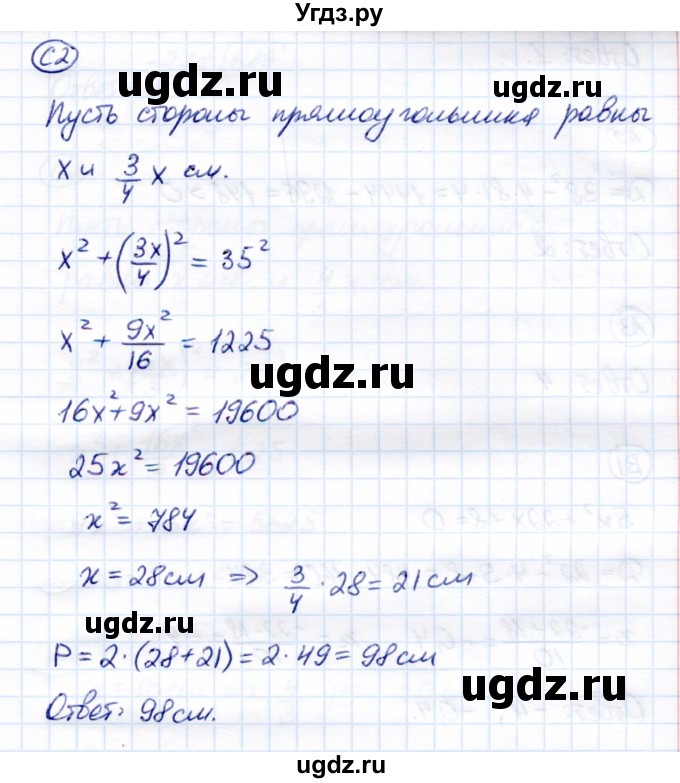 Угдз.ру
C2
ugdz.ru
ugdz.ru
Пусть стороны прямоугольника равны
x и 3/4 x см.
x² + (3x/4)² = 35²
ugdz.ru
x² + 9x²/16 = 1225
ugdz.ru
16x² + 9x² = 19600
25x² = 19600
ugdz.ru
x² = 784
x = 28см ⇒ 3/4 · 28 = 21 см
ugdz.ru
P = 2·(28+21) = 2·49 = 98см
ugdz.ru
Ответ: 98см.
ugdz.ru
ugdz.ru
Угдз.ру